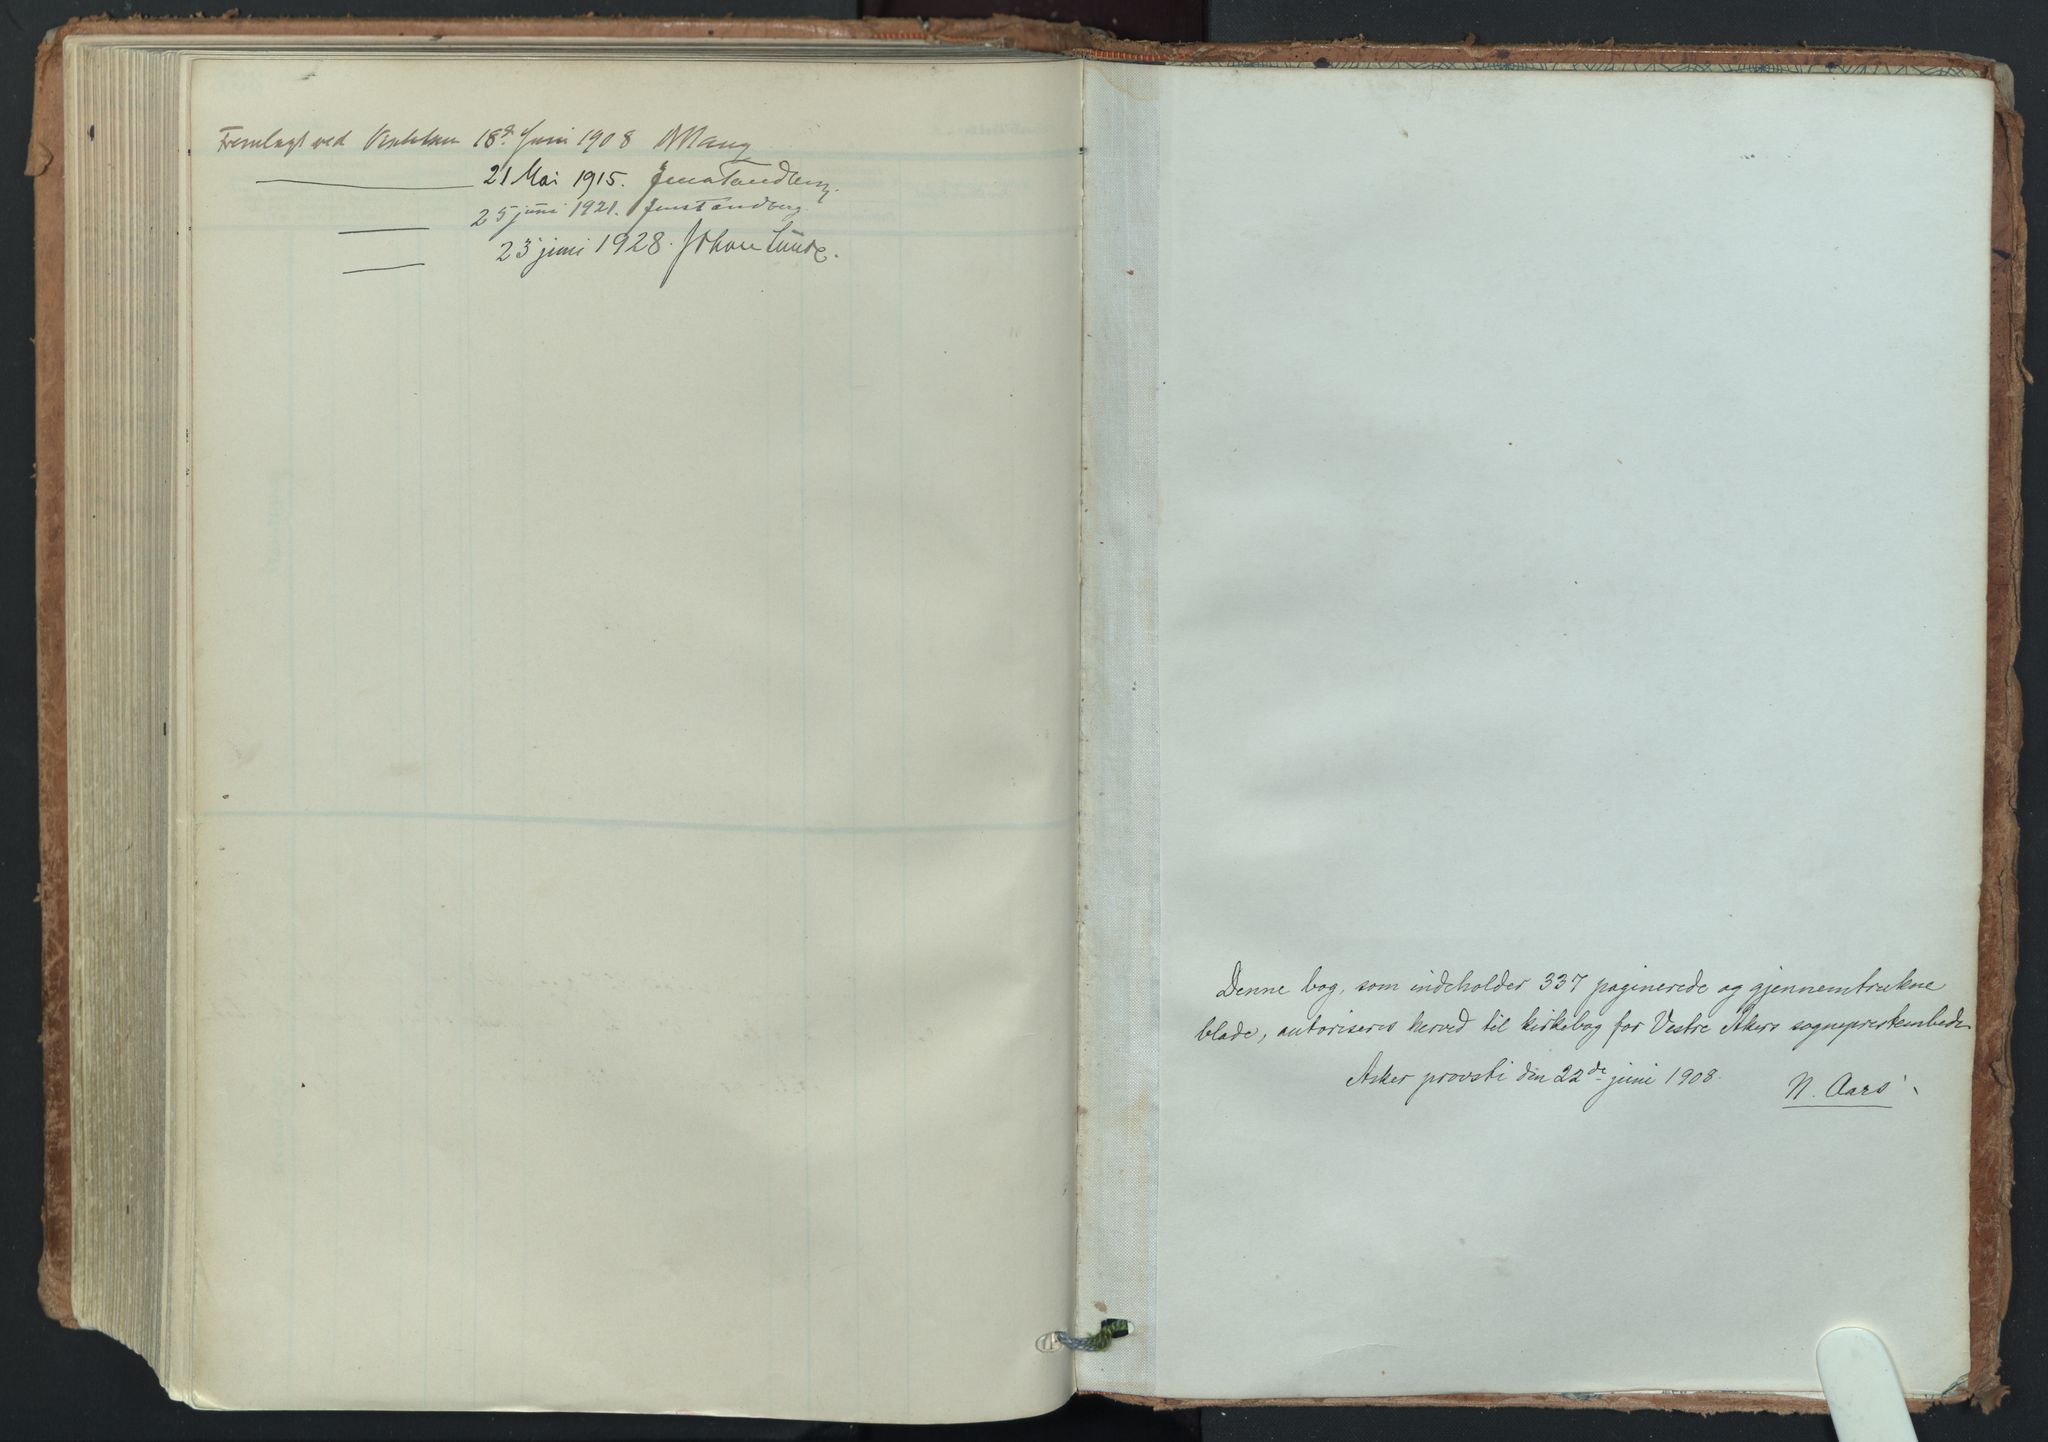 Fremlagt ved Visitatsen 18de Juni 1908
21 Mai 1915. Jens Tandberg.
25 juni 1921. Jens Tandberg
23 juni 1928. Johan Lunde.
Denne bog, som indeholder 337 paginerede og gjennemtrukne
blade, autoriseres herved til kirkebog for Vestre Akers sogneprestembede
Asker provsti den 22de juni 1908.
N. Aars